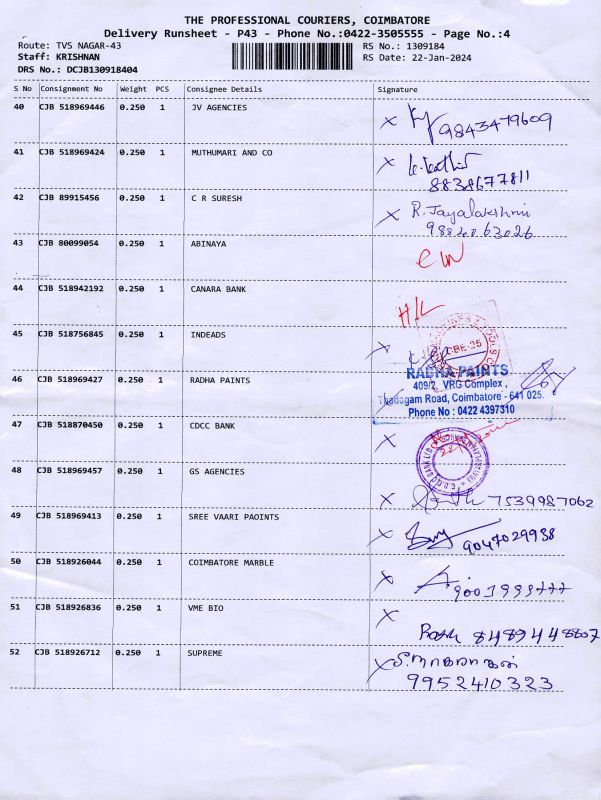 THE PROFESSIONAL COURIERS, COIMBATORE
Delivery Runsheet - P43 - Phone No.:0422-3505555 - Page No.:4
Route: TVS NAGAR-43 RS No.: 1309184
Staff: KRISHNAN RS Date: 22-Jan-2024
DRS No.: DCJB130918404
S No Consignment No Weight PCS Consignee Details Signature
40 CJB 518969446 0.250 1 JV AGENCIES
9843479609
41 CJB 518969424 0.250 1 MUTHUMARI AND CO
8838677811
42 CJB 89915456 0.250 1 C R SURESH R. Jayalakshmi
43 CJB 80099054 0.250 1 ABINAYA
44 CJB 518942192 0.250 1 CANARA BANK
45 CJB 518756845 0.250 1 INDEADS
CBE-25
46 CJB 518969427 0.250 1 RADHA PAINTS
RADHA PAINTS
409/2, VRG Complex,
Thadagam Road, Coimbatore - 641 025.
Phone No : 0422 4397310
47 CJB 518870450 0.250 1 CDCC BANK
48 CJB 518969457 0.250 1 GS AGENCIES
7539987062
49 CJB 518969413 0.250 1 SREE VAARI PAOINTS
9047029938
50 CJB 518926044 0.250 1 COIMBATORE MARBLE
51 CJB 518926836 0.250 1 VME BIO
8489448807
52 CJB 518926712 0.250 1 SUPREME
9952410323